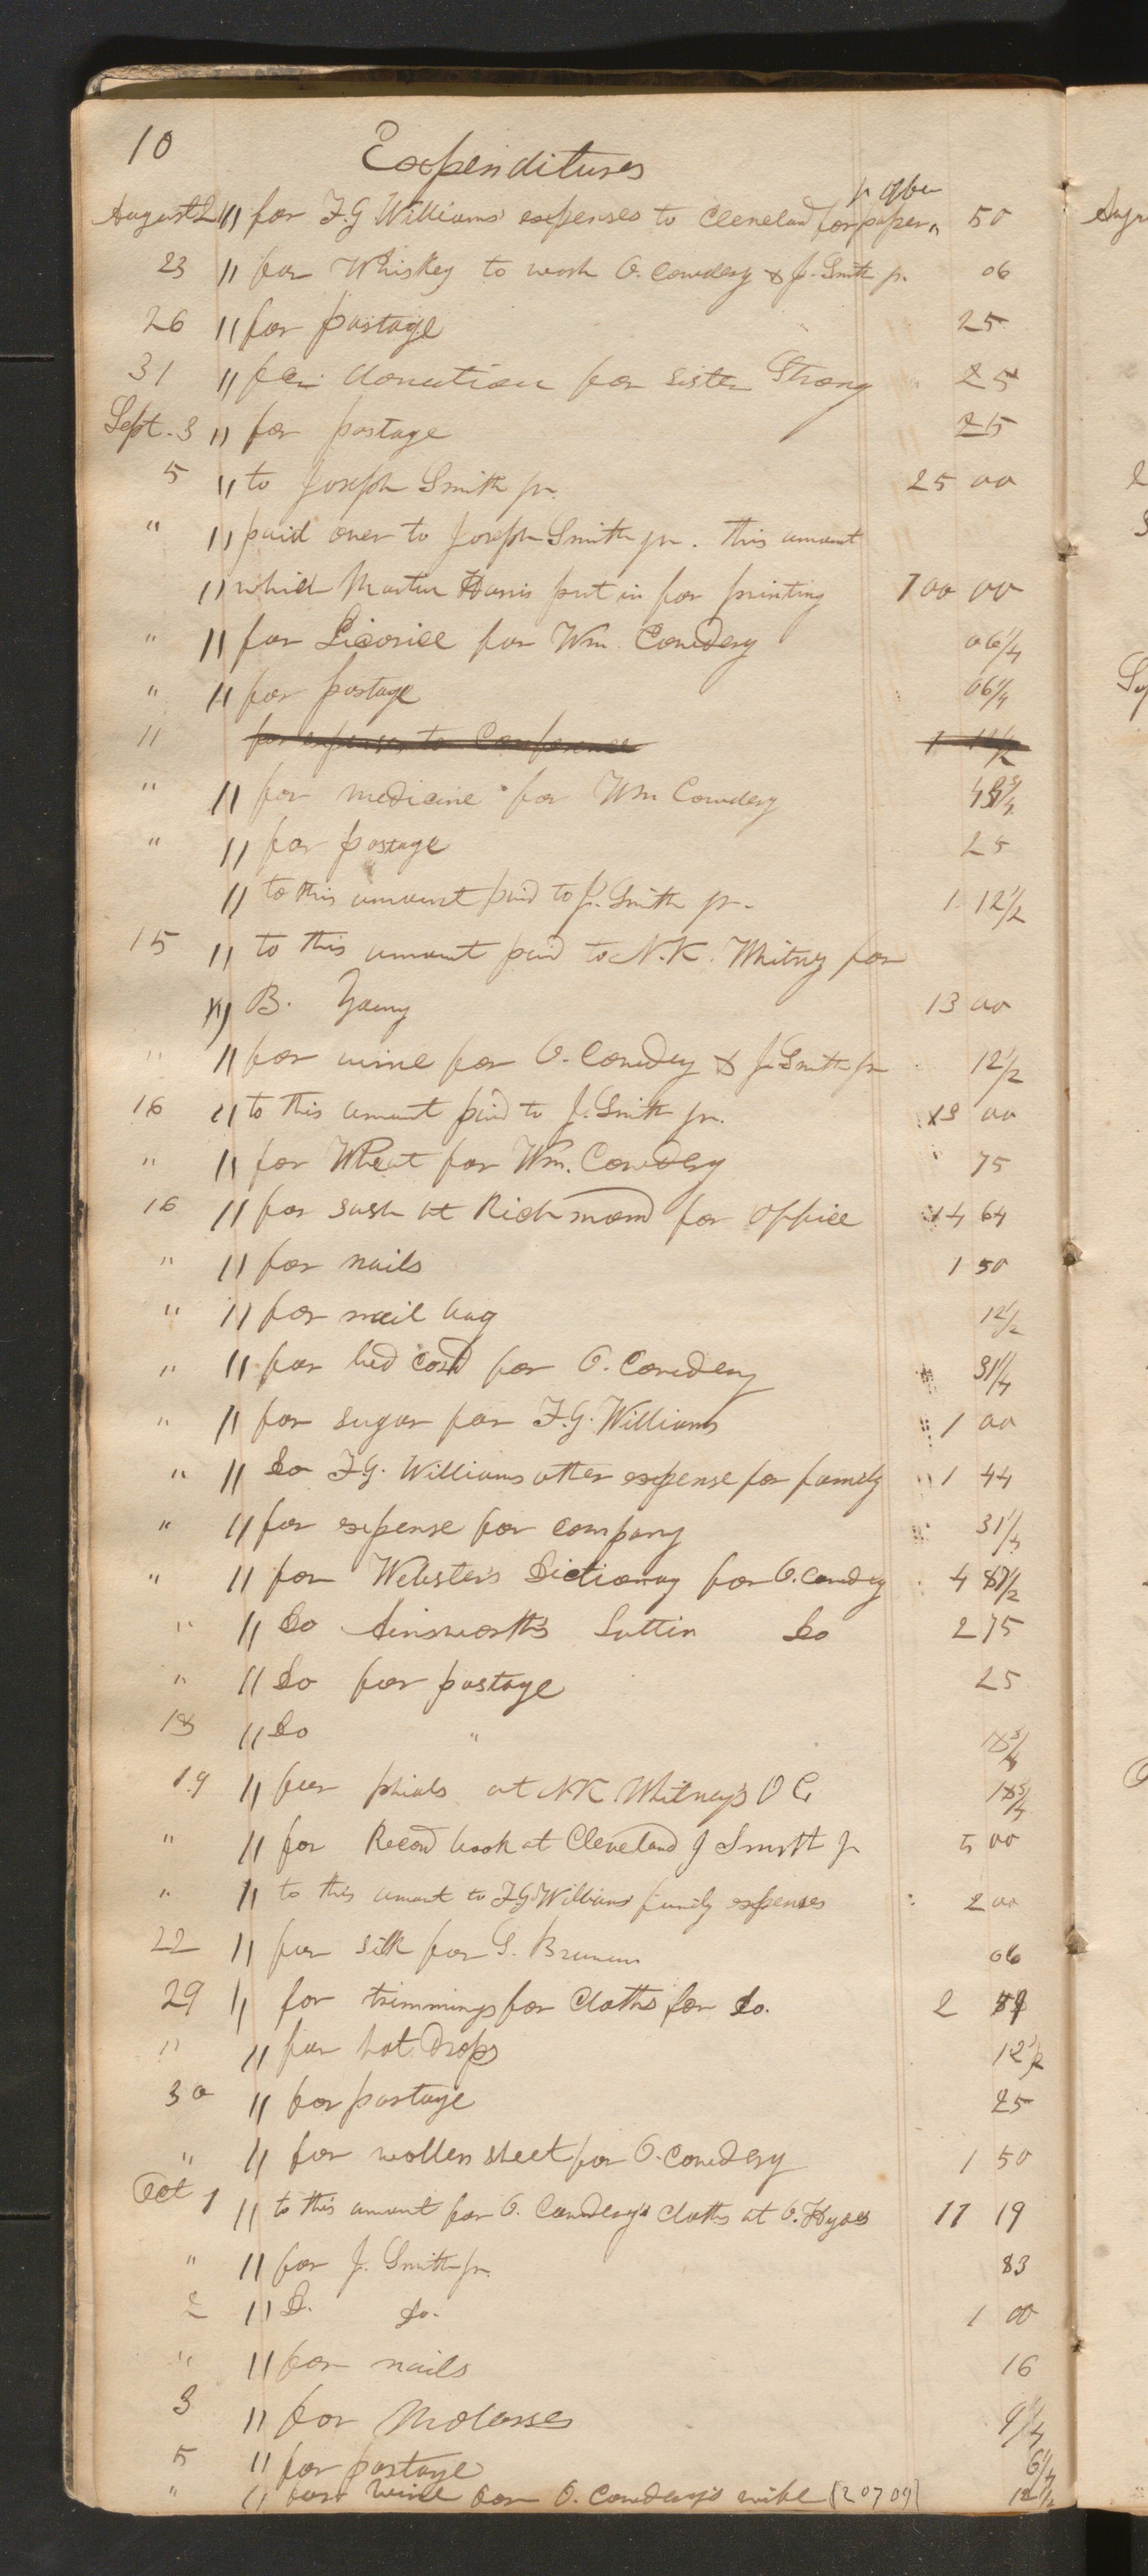 10 Expenditures
August 21 " for F.G. Williams' expenses to Cleveland for paper " 50
23 " for Whiskey to wash O. Cowdery & J. Smith jr. 06
26 " for postage 25
31 " for donation for sister Strong 25
Sept. 3 " for postage 25
5 " to Joseph Smith jr. 25 00
" " paid over to Joseph Smith jr. this amount
" which Martin Harris put in for printing 100 00
" " for Licorice for Wm. Cowdery 06 1/4
" " for postage 06 1/4
11 for expenses to Conference 1 12 1/2
" " for medicine for Wm Cowdery 3/4
" " for postage 25
" to this amount paid to J. Smith jr. 1 12 1/2
15 " to this amount paid to N.K. Whitney for
" B. Young 13 00
" " for wine for O. Cowdery & J. Smith jr 12 1/2
16 " to this amount paid to J. Smith jr. 00
" " for Wheat for Wm. Cowdery 75
16 " for sash at Richmond for office 14 64
" " for nails 1 50
" " for mail bag 12 1/2
" " for bed cord for O. Cowdery 31 1/4
" " for sugar for F.G. Williams 1 00
" " Do F.G. Williams other expense for family 1 44
" " for expense for company 31 1/4
" " for Webster's Dictionary for O. Cowdery 4 87 1/2
" " Do Ainsworth's Lattin Do 2 75
" " Do for postage 25
18 " Do " 18 3/4
19 " for phials at NK Whitney's O C 18 3/4
" " for Record book at Cleveland J Smith jr 5 00
" " to this amount to F.G. Williams family expenses 2 00
22 " for silk for S. Brunson 06
29 " for trimmings for cloths for do. 2
" " for hot drops 12 1/2
30 " for postage 25
" " for wollen sheet for O. Cowdery 1 50
Oct 1 " to this amount for O. Cowdery's cloths at O. Hydes 11 19
" " for J. Smith jr. 83
2 " D. do. 1 00
" " for nails 16
3 " for Molasses 9 1/4
5 " for postage 6 1/4
" " for wine for O. Cowdery's wife [207 09] 12 1/2